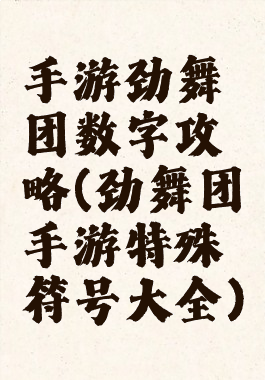 手游劲舞
团数字攻
略(劲舞团
手游特殊
符号大全)